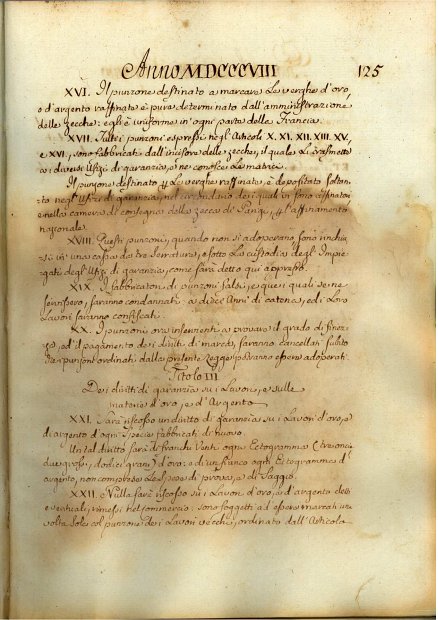 Anno MDCCCVIII 125
XVI. Il punzone destinato a marcare Le verghe d'oro,
o d'argento raffinate è pure determinato dall'amministrazione
delle zecche: egli è uniforme in ogni parte della Francia.
XVII. Tutti i punzoni espressi negl'Articoli X. XI. XII. XIII. XV.
e XVI, sono fabbricati dall'incisore delle zecche, il quale Le trasmette
a i diversi Ufizi di garanzia, e ne conserva Le matrici.
Il punzone destinato p Le verghe raffinate, è depositato soltan-
to negl'Ufizi di garanzia, nel circondario dei quali vi sono affinatori
e nella camera di consegna della zecca di Parigi, p l'affinamento
nazionale.
XVIII. Questi punzoni, quando non si adoperano, sono rinchiu-
si in una cassa da tre serrature, e sotto La custodia degl'Impie-
gati degl'Ufizi di garanzia, come sarà detto qui appresso.
XIX. I fabbricatori di punzoni falsi, e quei quali se ne
servissero, saranno condannati a dieci Anni di catene, ed i Loro
Lavori saranno confiscati.
XX. I punzoni ora inservienti a provare il grado di finez-
za, ed il pagamento dei diritti di marca, saranno cancellati subito
che i punzoni ordinati dalla presente Legge potranno essere adoperati.
Titolo III
Dei diritti di garanzia su i Lavori, e sulle
materie d'oro, e d'Argento
XXI. Sarà riscosso un diritto di garanzia su i Lavori d'oro, e
di argento d'ogni specie fabbricati di nuovo.
Un tal diritto sarà di franchi Venti ogni Ectogramma (tre oncie
due grossi, dodici grani) d'oro: e di un franco ogni Ectogramma d'
argento, non compreso Le spese di prova, o di Saggio.
XXII. Nulla sarà riscosso su i Lavori d'oro, e d'argento detti
eventuali, rimessi nel commercio: sono soggetti ad essere marcati una
volta sola col punzone dei Lavori vecchi, ordinato dall'Articolo